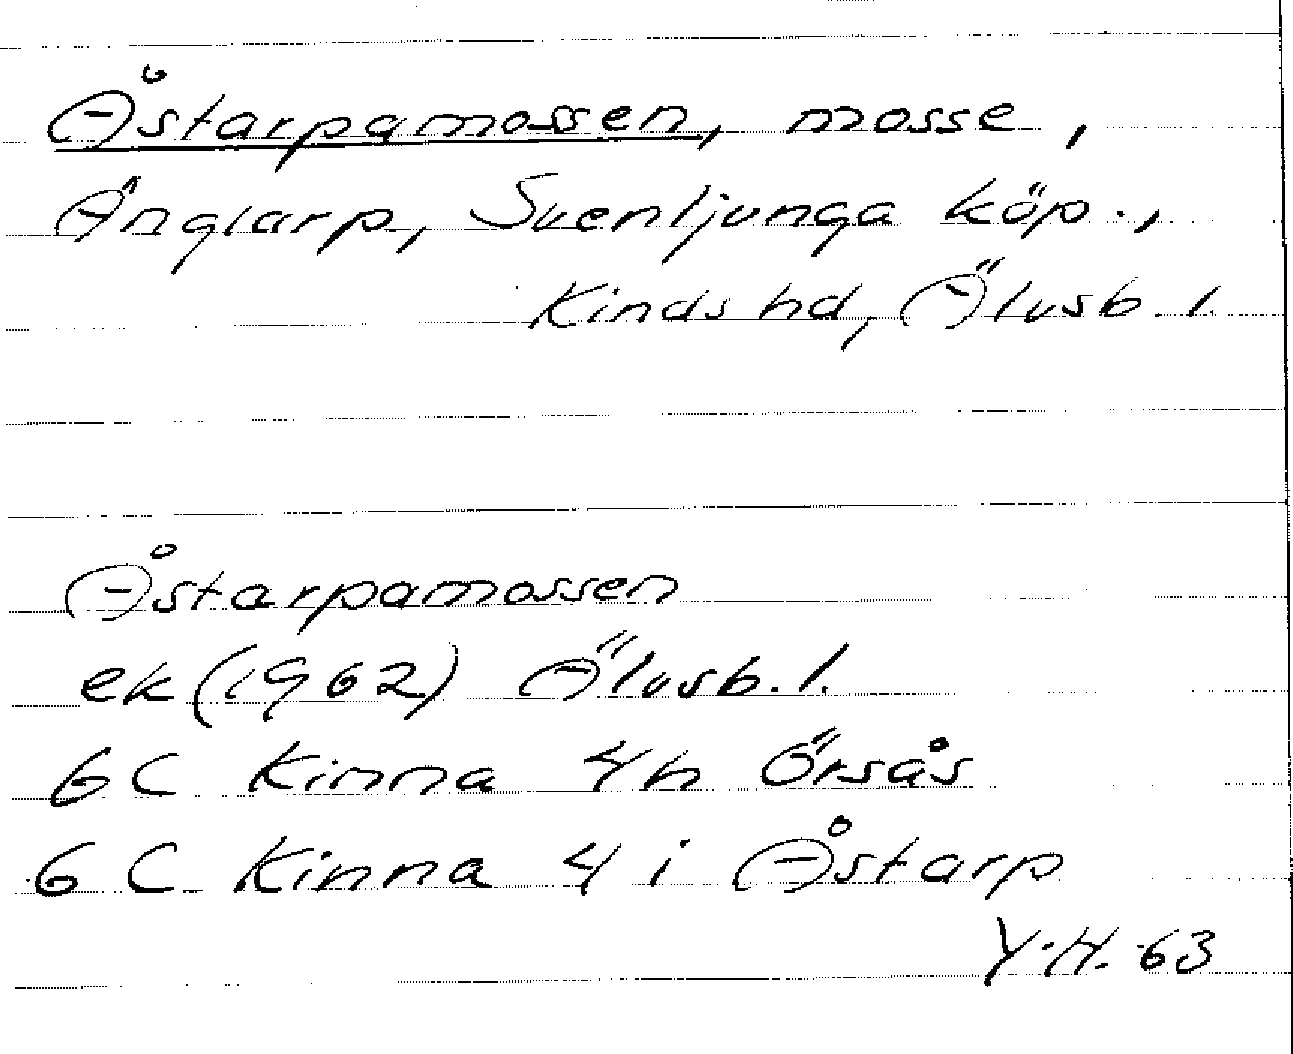 Åstarpamossen, mosse,
Änglarp, Svenljunga köp.,
Kinds hd, Älvsb. l.
Åstarpamossen
ek (1962) Älvsb. l.
6 C Kinna 4 h Örsås
6 C Kinna 4 i Åstarp
Y.H. 63